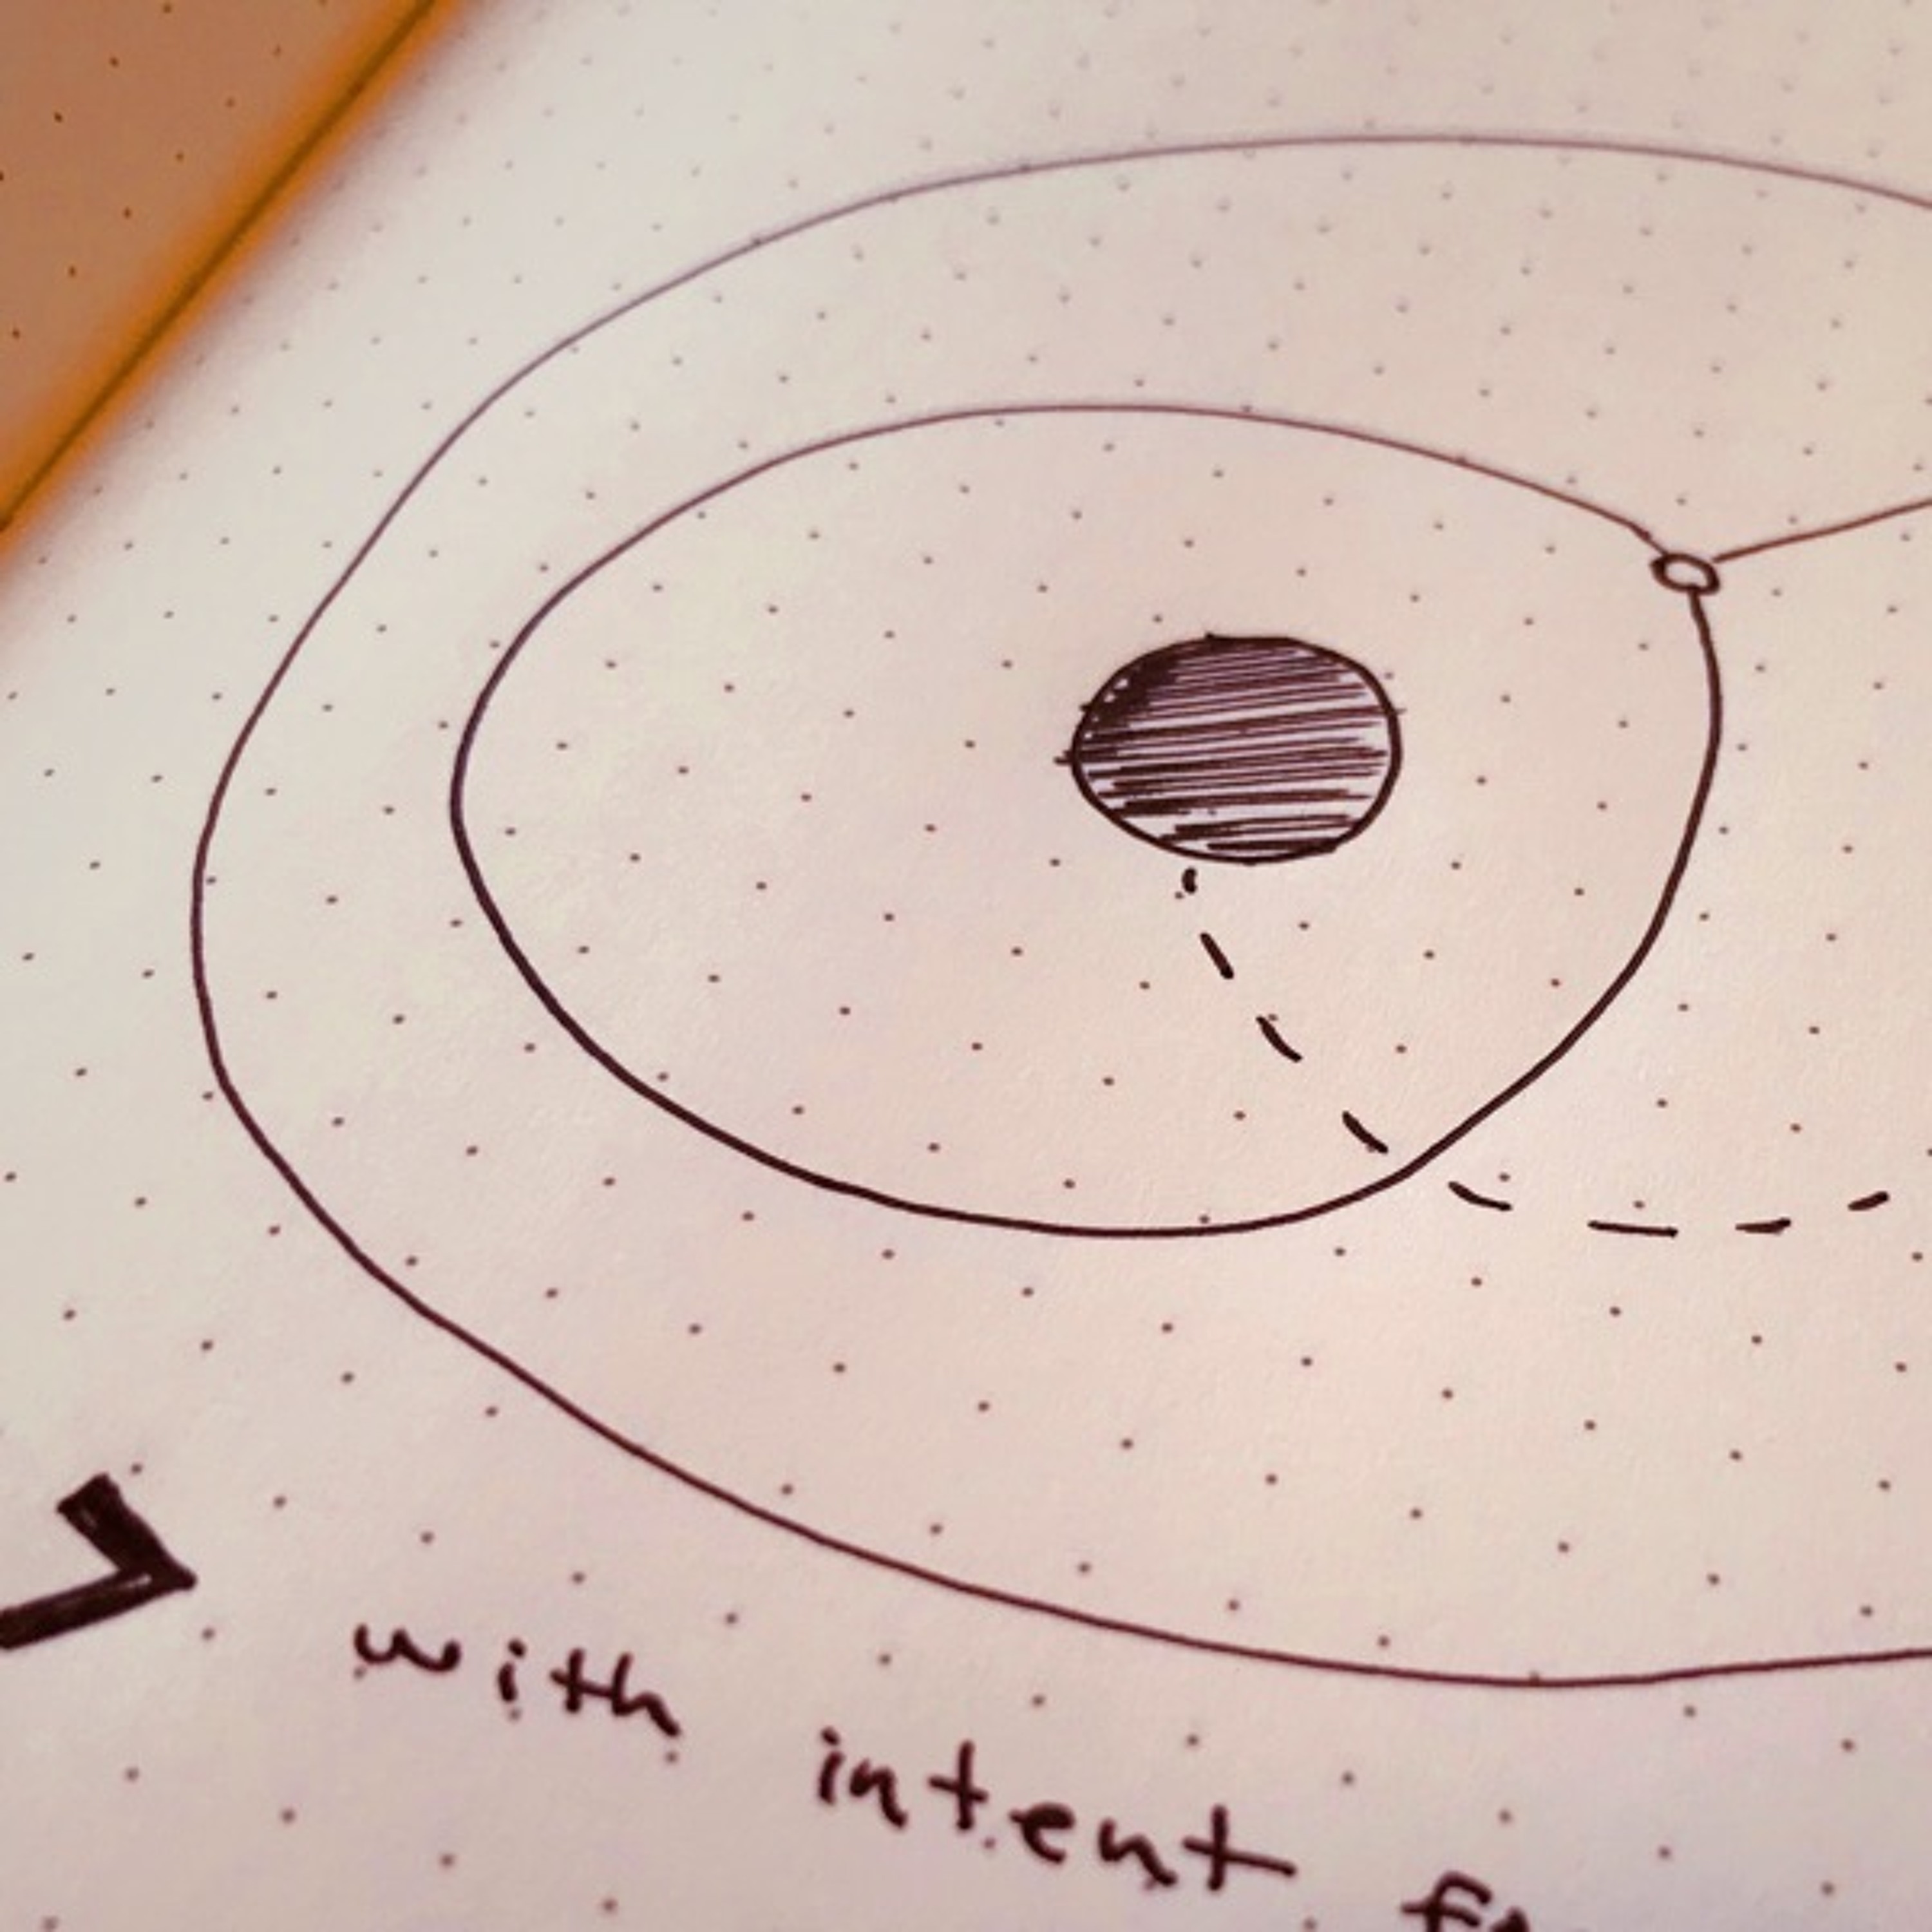 with intent